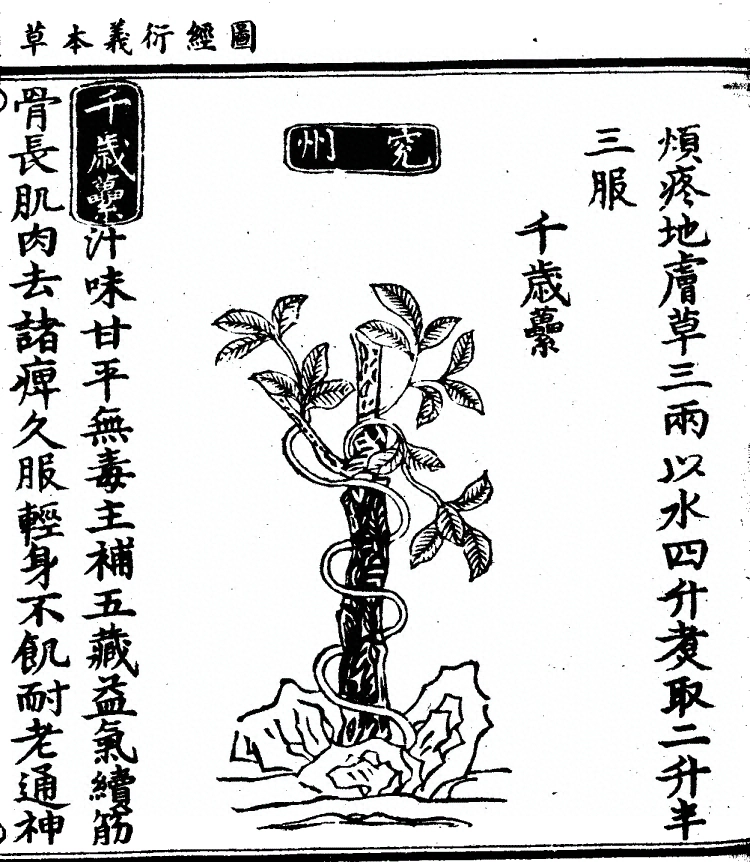 圖經衍義本草
煩疼地膚草三兩以水四升煑取二升半
三服
千歳虆
兖州
千歳虆汁味甘平無毒主補五藏益氣續筋
骨長肌肉去諸痺久服輕身不飢耐老通神